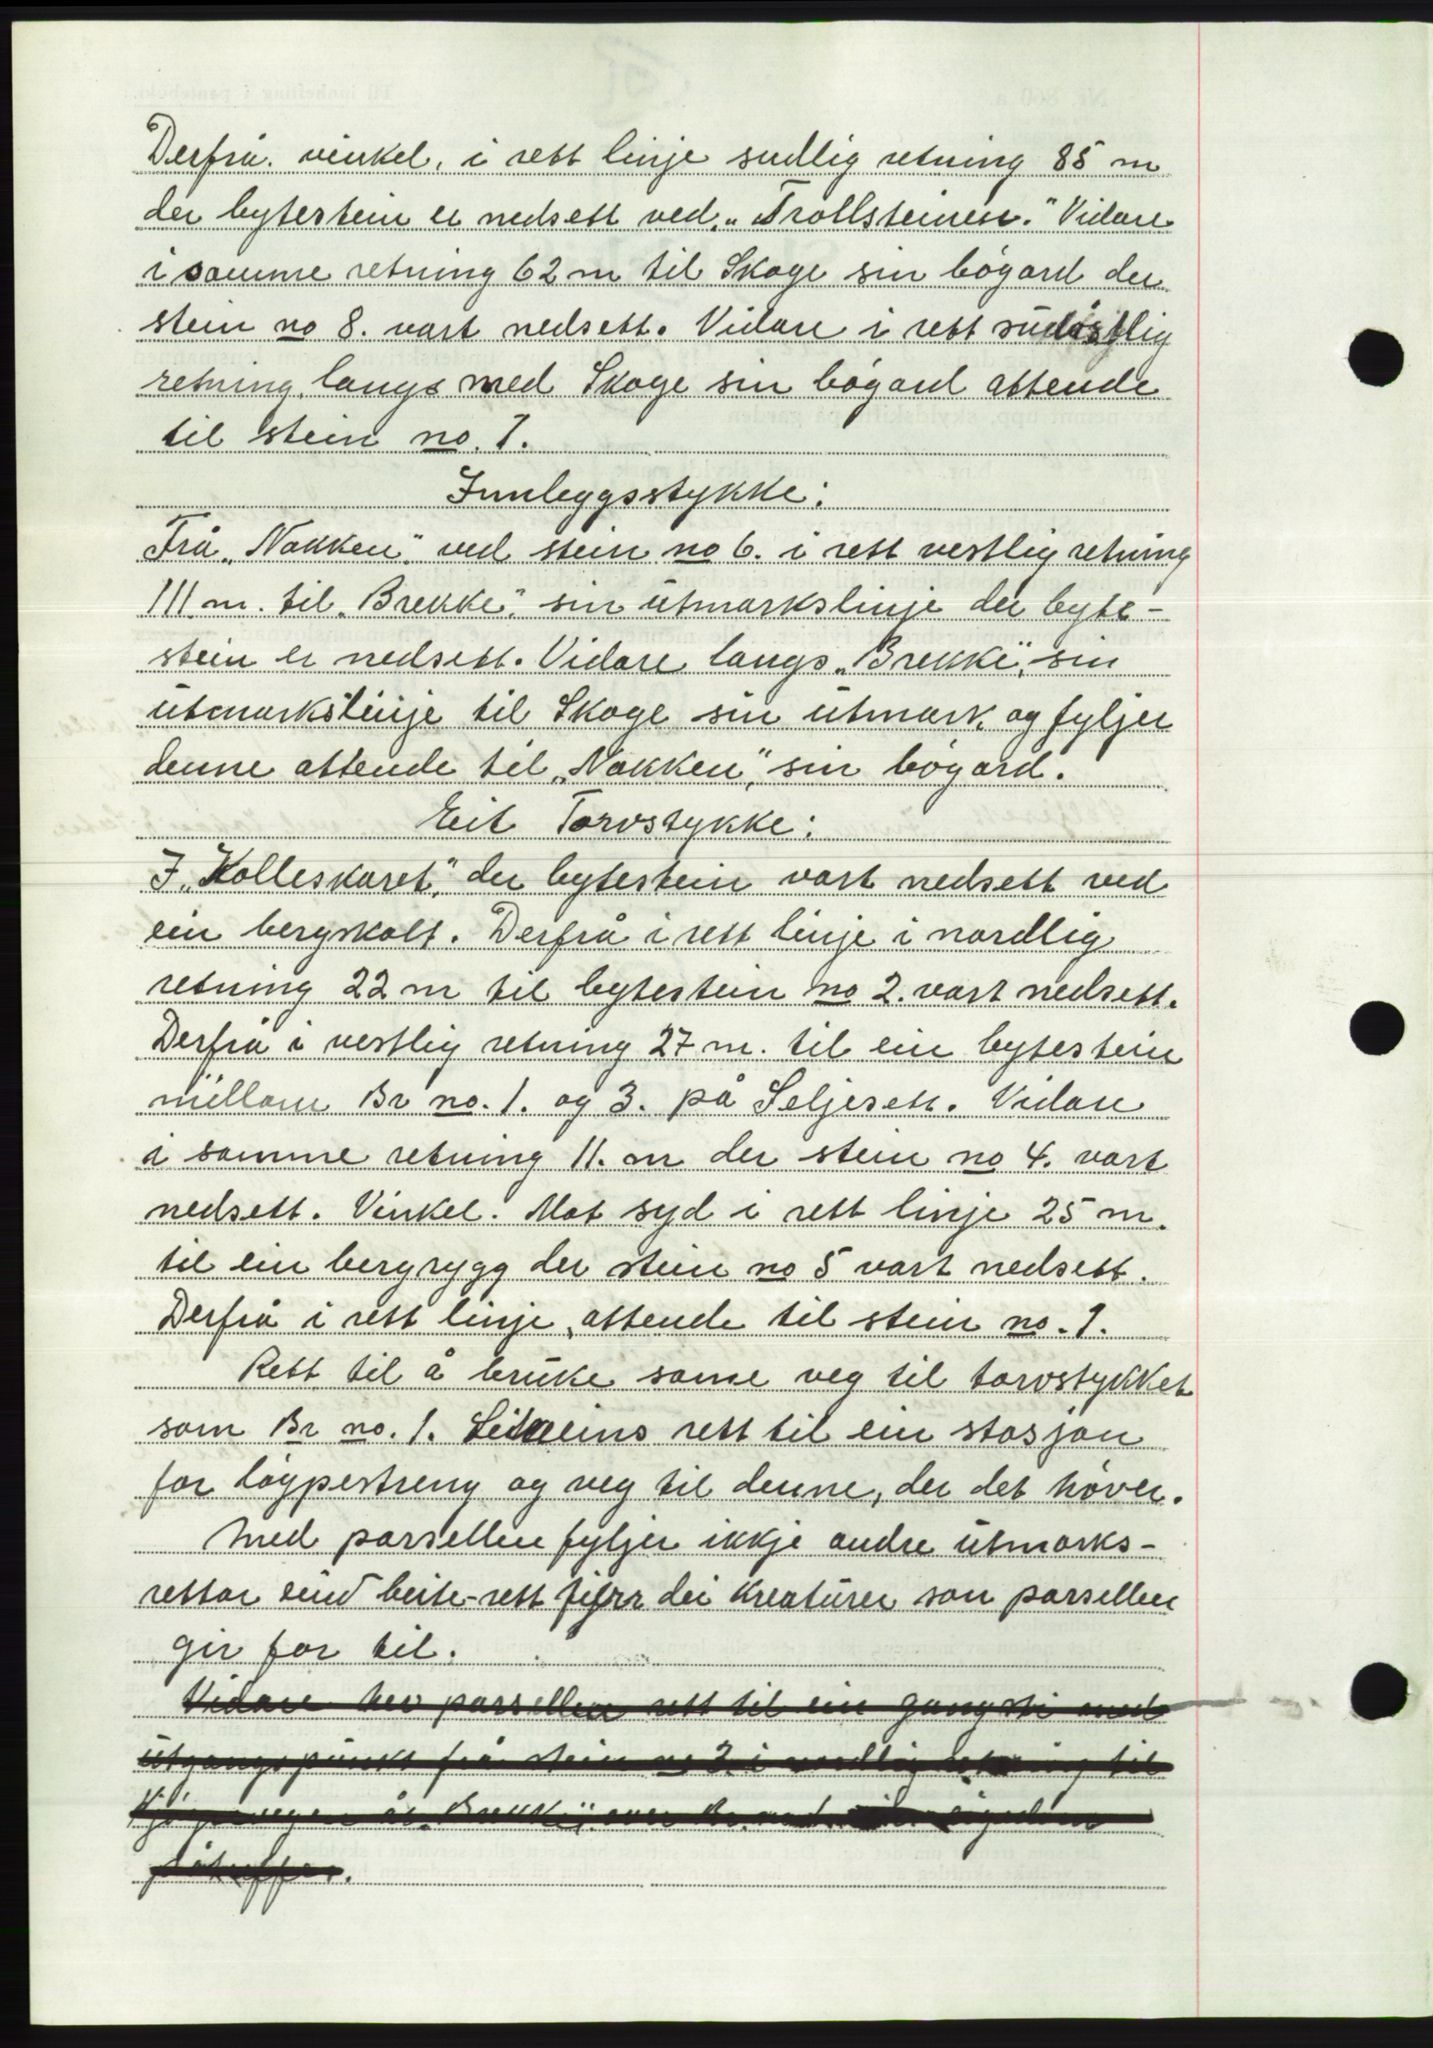 Derfrå. vinkel, i rett linje sudlig retning 85 m
der bytestein er nedsett ved „Trollsteinen.” Vidare
i samme retning 62 m til Skoge sin bögard der
stein no 8. vart nedsett. Vidare i rett südöstlig
retning, langs med Skoge sin bögard attende
til stein no. 1.
Innleggsstykke:
Frå „Nakken”. ved stein no 6. i rett vestlig retning
111 m. til „Brekke”. sin ütmarkslinje der byte-
stein er nedsett. Vidare langs „Brekke”, sin
ütmarkslinje til Skoge sin ütmark, og fyljer
denne attende til „Nakken”, sin bögard.
Eit Torvstykke:
I „Kolleskaret”. der bytestein vart nedsett ved
ein bergskolt. Derfrå i rett linje i nordlig
retning 22 m til bytestein no 2. vart nedsett.
Derfrå i vestlig retning 27 m. til ein bytestein
millom Br no. 1. og 3. på Seljesett. Vidare
i samme retning 11. m der stein no 4. vart
nedsett. Vinkel. Mot syd i rett linje 25 m.
til ein bergrygg der stein no 5 vart nedsett.
Derfrå i rett linje, attende til stein no. 1.
Rett til å brüke same veg til torvstykket
som Br no. 1. rett til ein stasjon
for löypestreng og veg til denne, der det höver.
Med parsellen fyljer ikkje andre ütmarks-
rettar beite-rett fyrr dei kreatürer som parsellen
gir for til.
Vidare hev parsellen rett til ein gangsti med
ütgangspünkt frå stein no 2 i nordlig retning til
„Brekke”. over Br.
påtreffer.